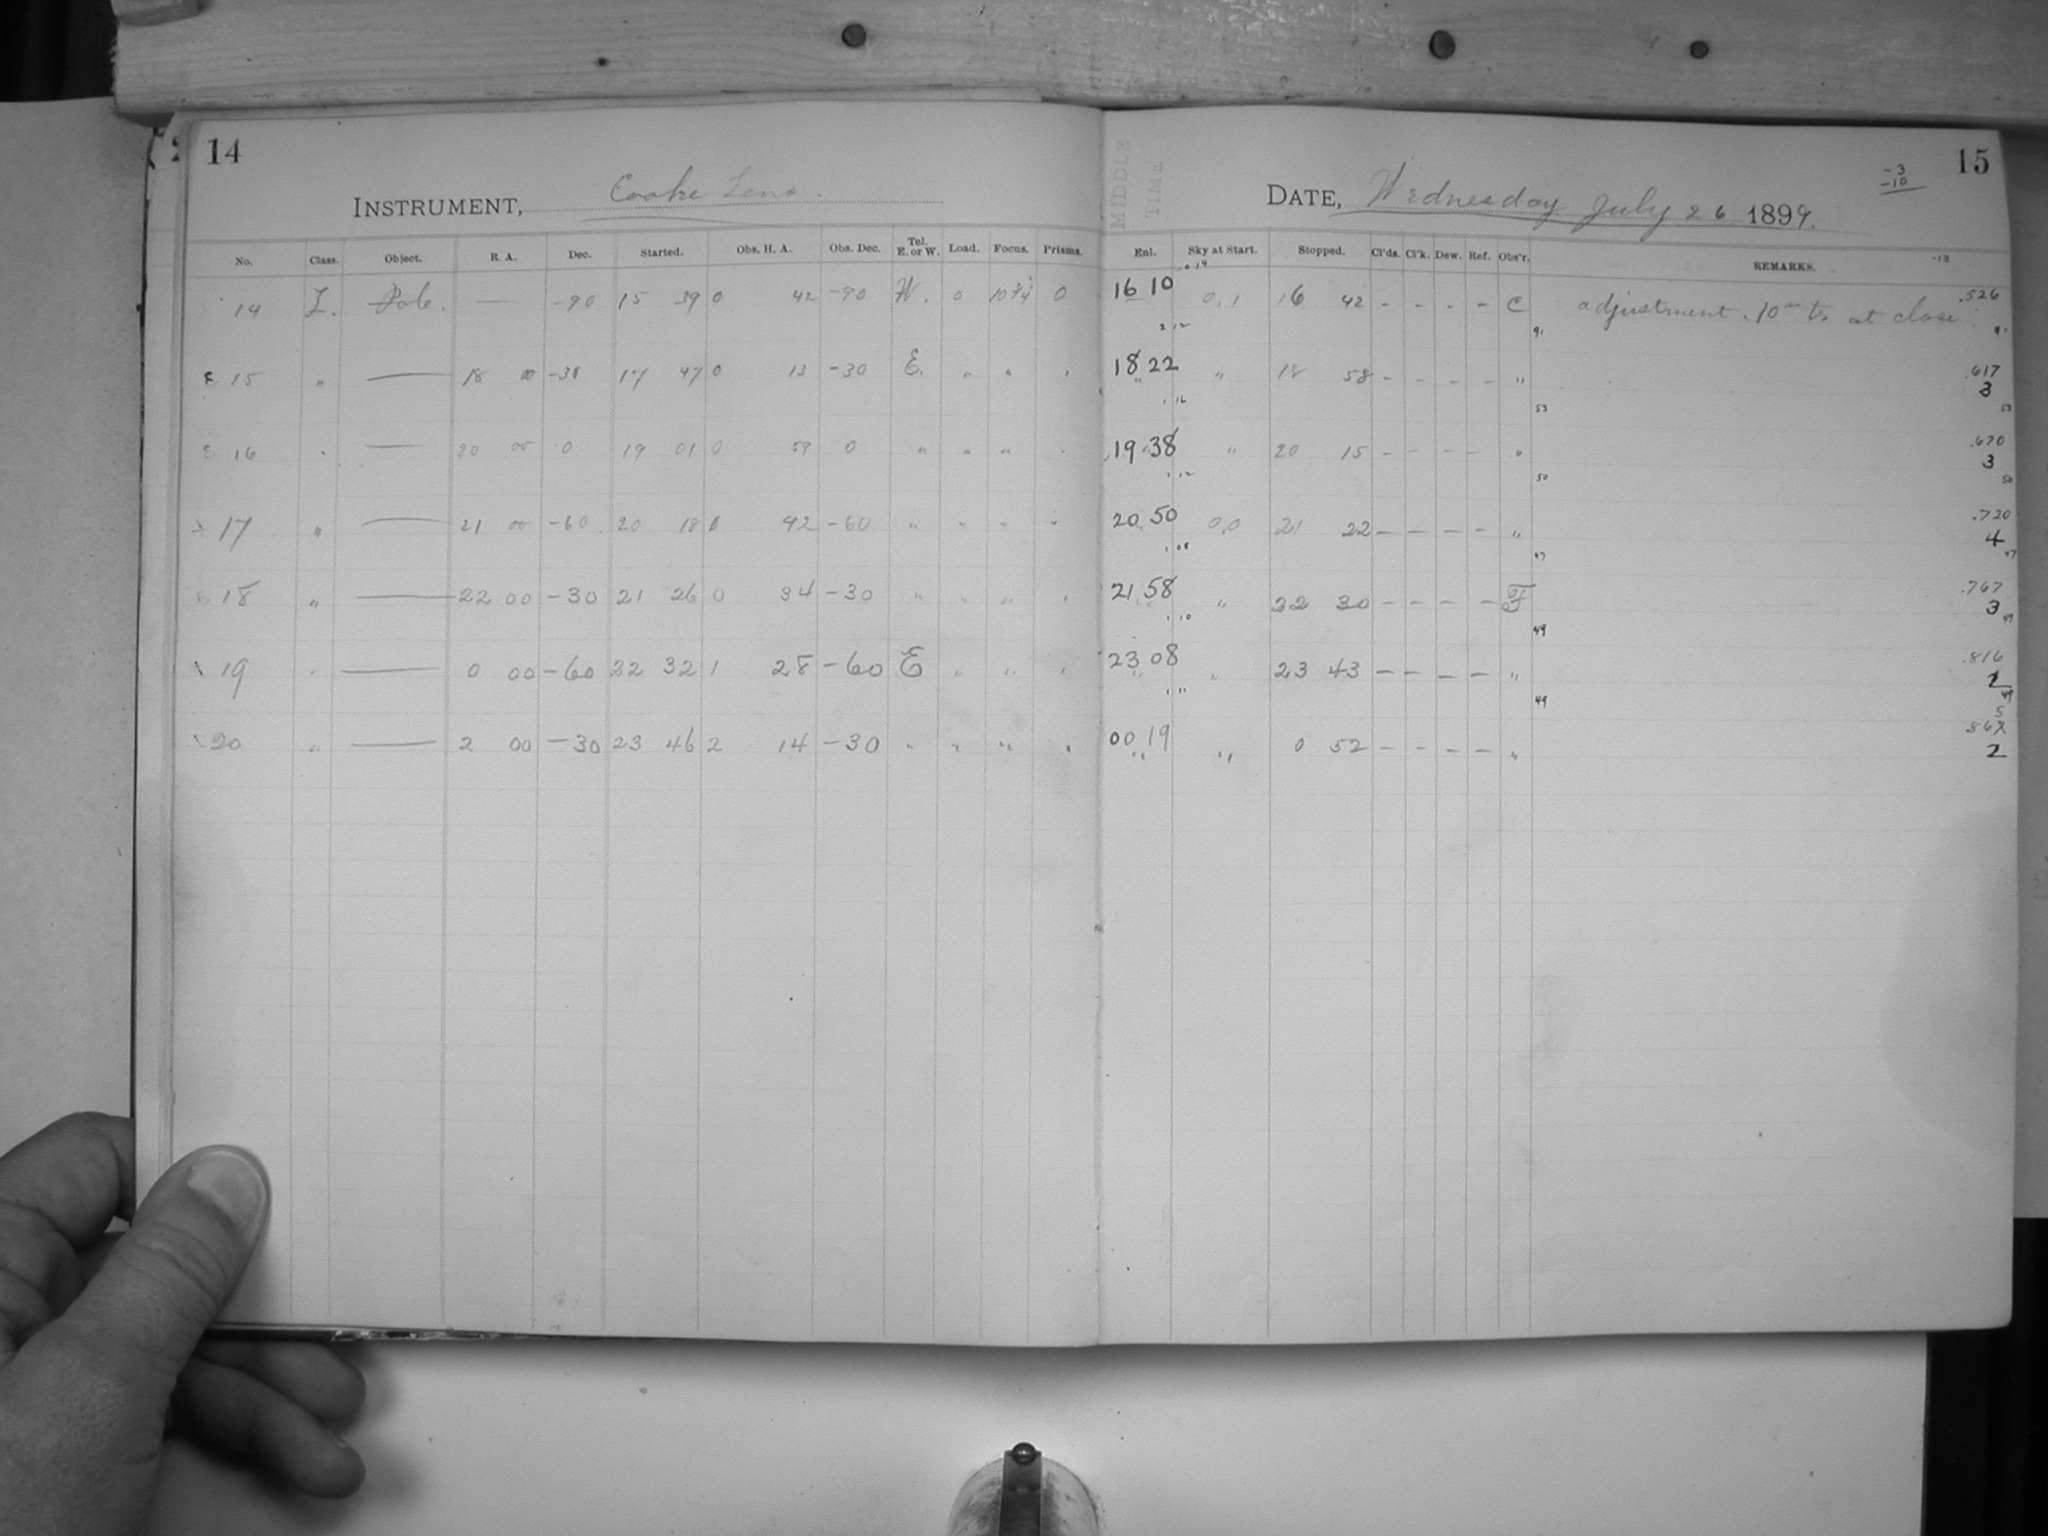 14
INSTRUMENT, Cooke Lens.
No. Class. Object. R. A. Dec. Started. Obs. H. A. Obs. Dec. Tel. E. or W. Load. Focus. Prisms.
14 L. Pole. — -90 15 39 0 42 -90 W. 0 10 3/4 0
15 " — 18 00 -30 17 47 0 13 -30 E. " " "
16 " — 20 00 0 19 01 0 59 0 " " " "
17 " — 21 00 -60 20 18 0 42 -60 " " " "
18 " — 22 00 -30 21 26 0 34 -30 " " " "
19 " — 0 00 -60 22 32 1 28 -60 E " " "
20 " — 2 00 -30 23 46 2 14 -30 " " " "
MIDDLE
TIME
15
-3
-10
DATE, Wednesday July 26 1899.
Enl. Sky at Start. Stopped. Cl'ds. Cl'k. Dew. Ref. Obs'r. REMARKS.
-13
16 10 0,1 16 42 - - - - C adjustment. 10m tr at close .526
2 12 91
18 22 " 18 58 - - - - " .617
3
1 16 53 53
19 38 " 20 15 - - - - " .670
3
1 12 50 50
20 50 0,0 21 22 — — — — " .720
4
1 08 47 47
21 58 " 22 30 — — — —
.767
3
1 10 49 49
23 08 " 23 43 — — — — " .816
2
1 11 49 49
00 19 " 0 52 — — — — "
2